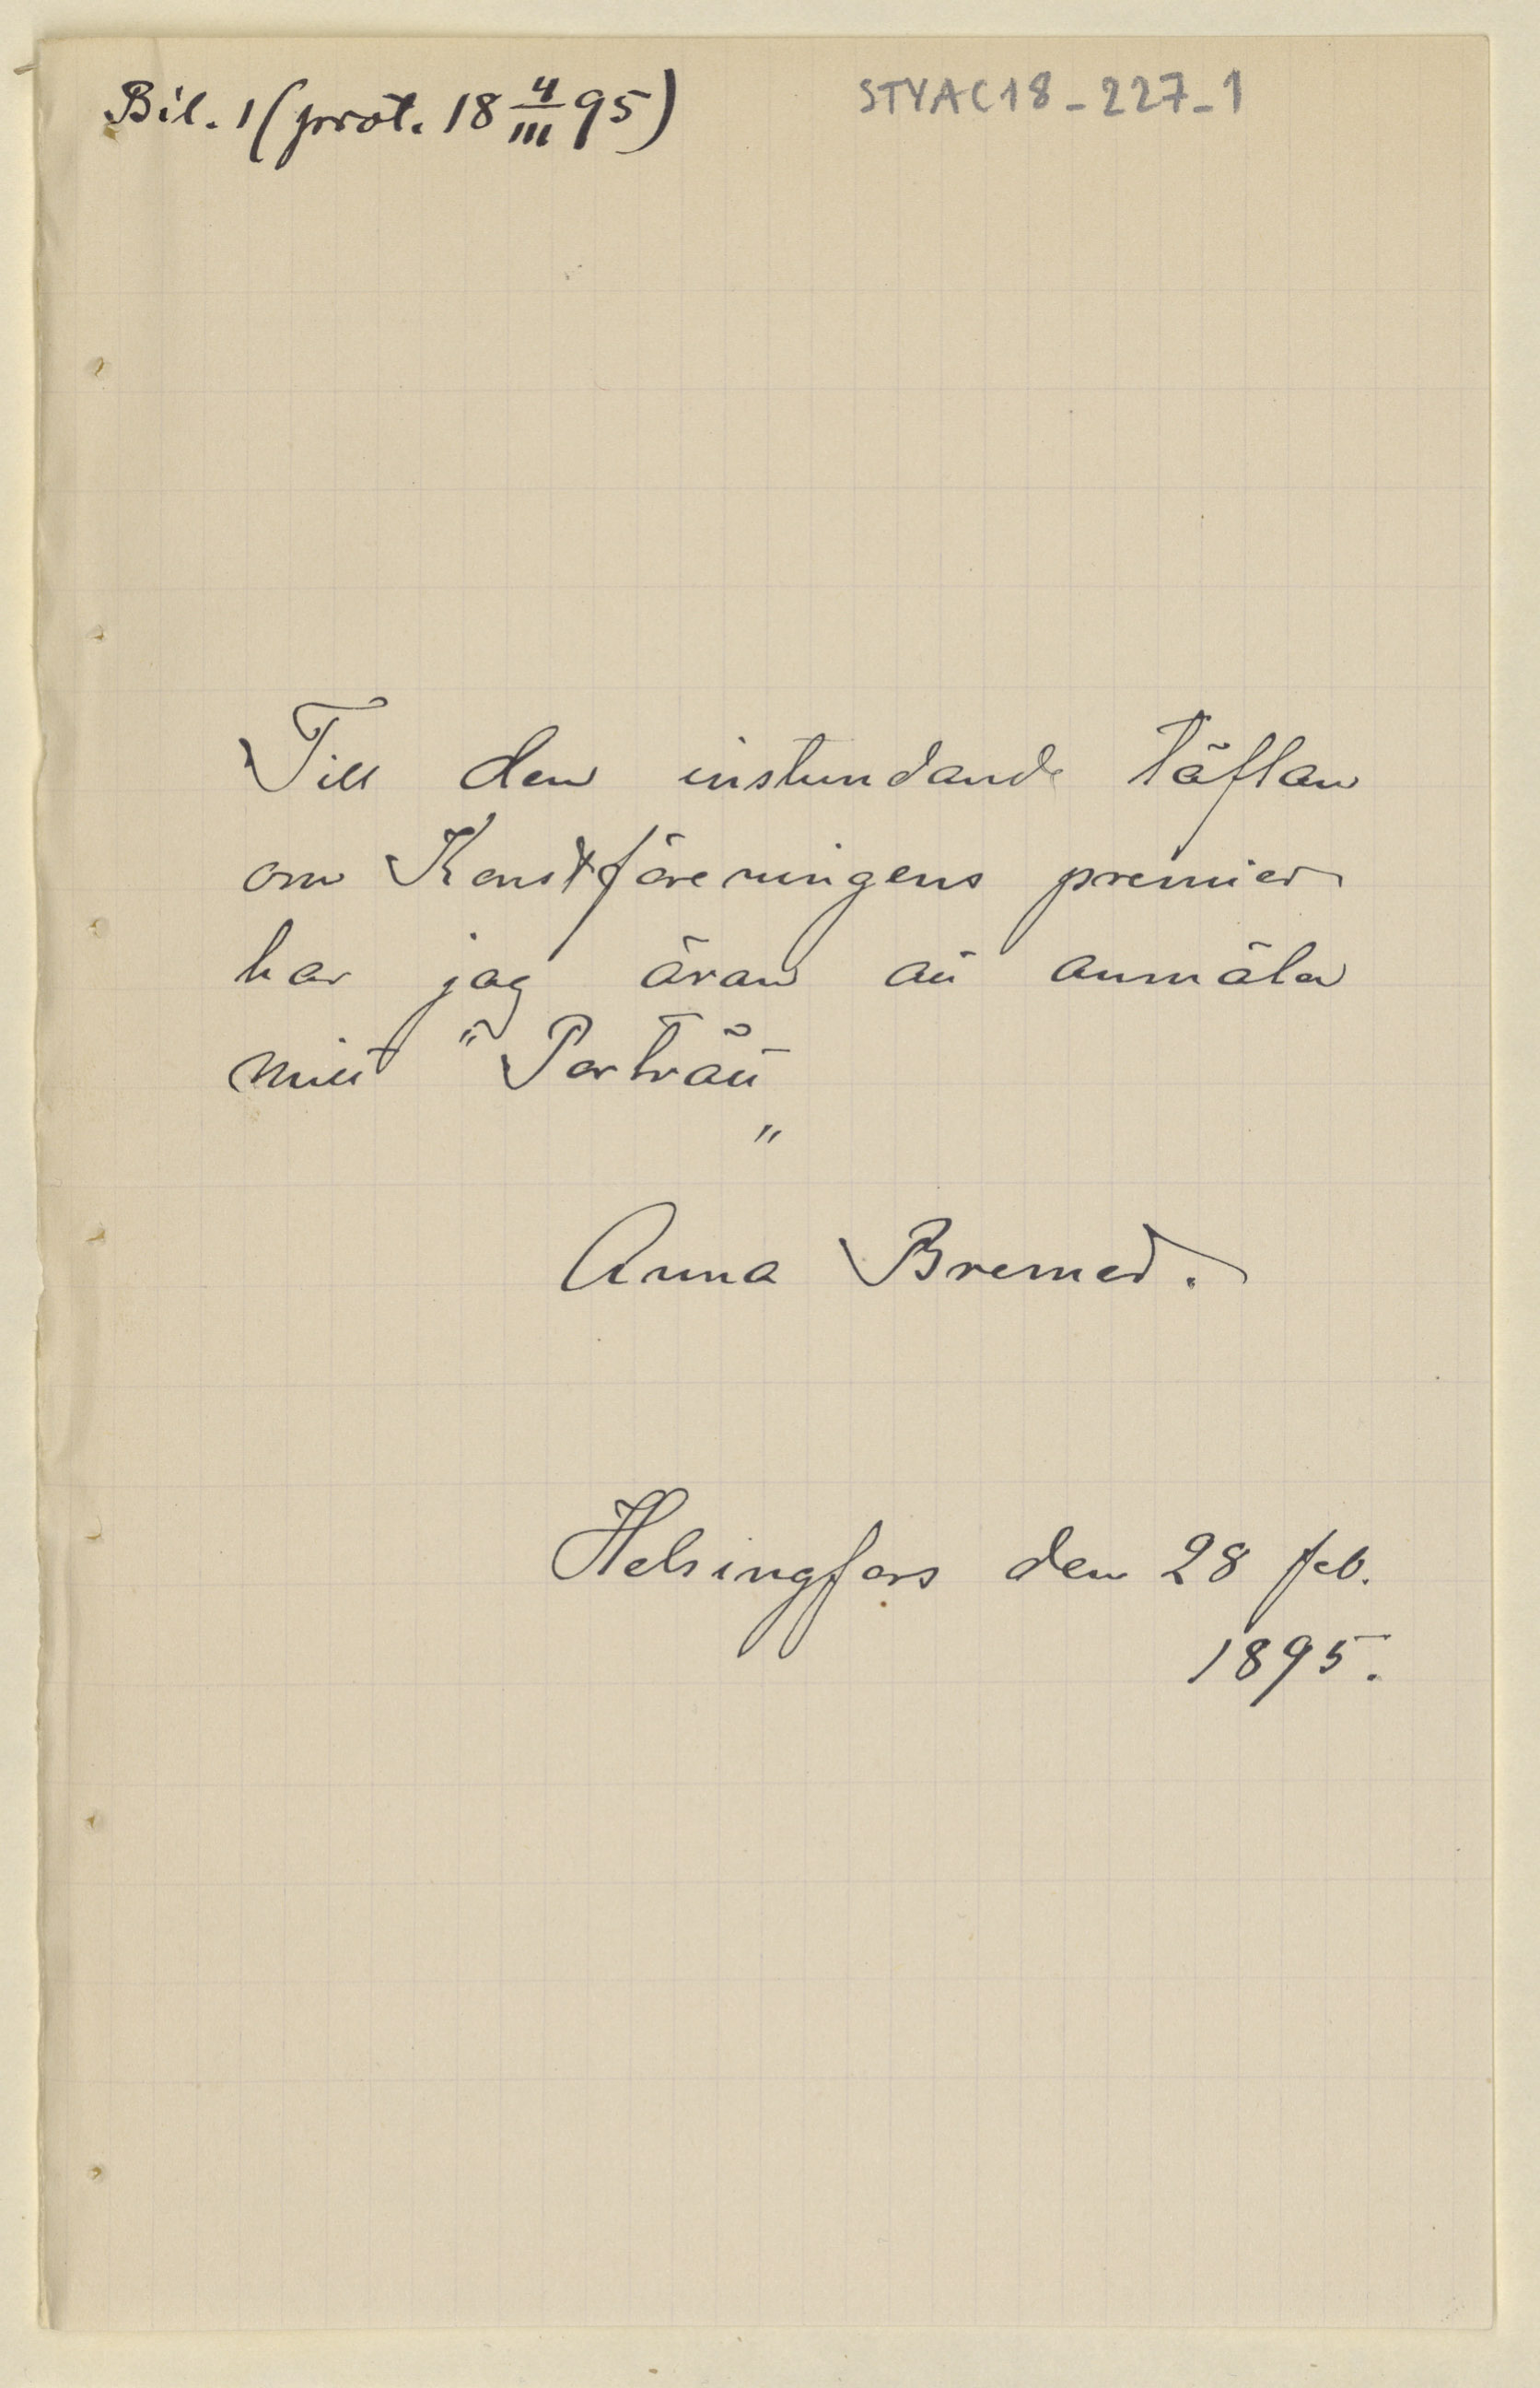 Bil. 1 (prot. 18 4/III 95)
STYAC18-227-1
Till den instundande täflan
om Konstföreningens premier
har jag äran att anmäla
mitt "Porträtt
"
Anna Bremer.
Helsingfors den 28 feb.
1895.